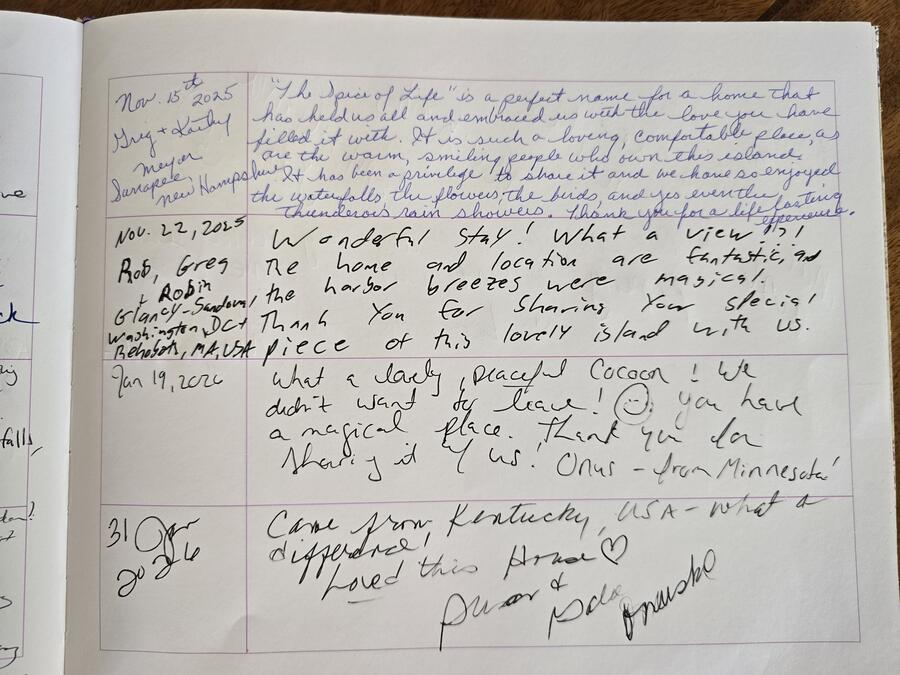 Nov. 15th 2025
Greg + Kathy
Meyer
Sunapee,
New Hampshire
"The Spice of Life" is a perfect name for a home that
has held us all and embraced us with the love you have
filled it with. It is such a loving, comfortable place, as
are the warm, smiling people who own this island.
It has been a privilege to share it and we have so enjoyed
the waterfalls, the flowers, the birds, and yes even the
thunderous rain showers. Thank you for a life lasting
experience.
Nov. 22, 2025
Rob, Greg
+ Robin
Glancy-Sandoval
Washington, DC +
Rehoboth, MA, USA
Wonderful stay! What a view!?!
The home and location are fantastic, and
the harbor breezes were magical.
Thank you for sharing your special
piece of this lovely island with us.
Jan 19, 2026
What a lovely, peaceful Cocoon! We
didn't want to leave! You have
a magical place. Thank you for
sharing it w/ us! - from Minnesota!
31 Jan
2026
Came from Kentucky, USA - what a
difference,
Loved this House ♡
&